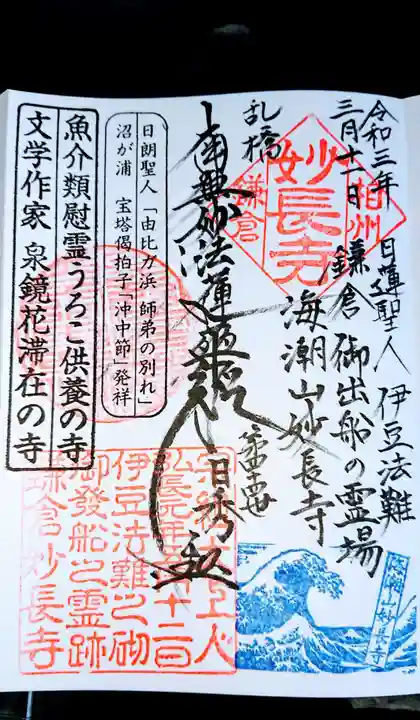 令和三年
三月十一日
日蓮聖人 伊豆法難
鎌倉 御出船の霊場
海潮山妙長寺
相州
妙長寺
鎌倉
乱橋
南無妙法蓮華経
日秀
日朗聖人「由比ガ浜・師弟の別れ」
沼が浦 宝塔偈拍子「沖中節」発祥
魚介類慰霊うろこ供養の寺
文学作家 泉鏡花滞在の寺
弘長元年五月十二日
伊豆法難之砌
御發船之霊跡
鎌倉妙長寺
海潮山妙長寺